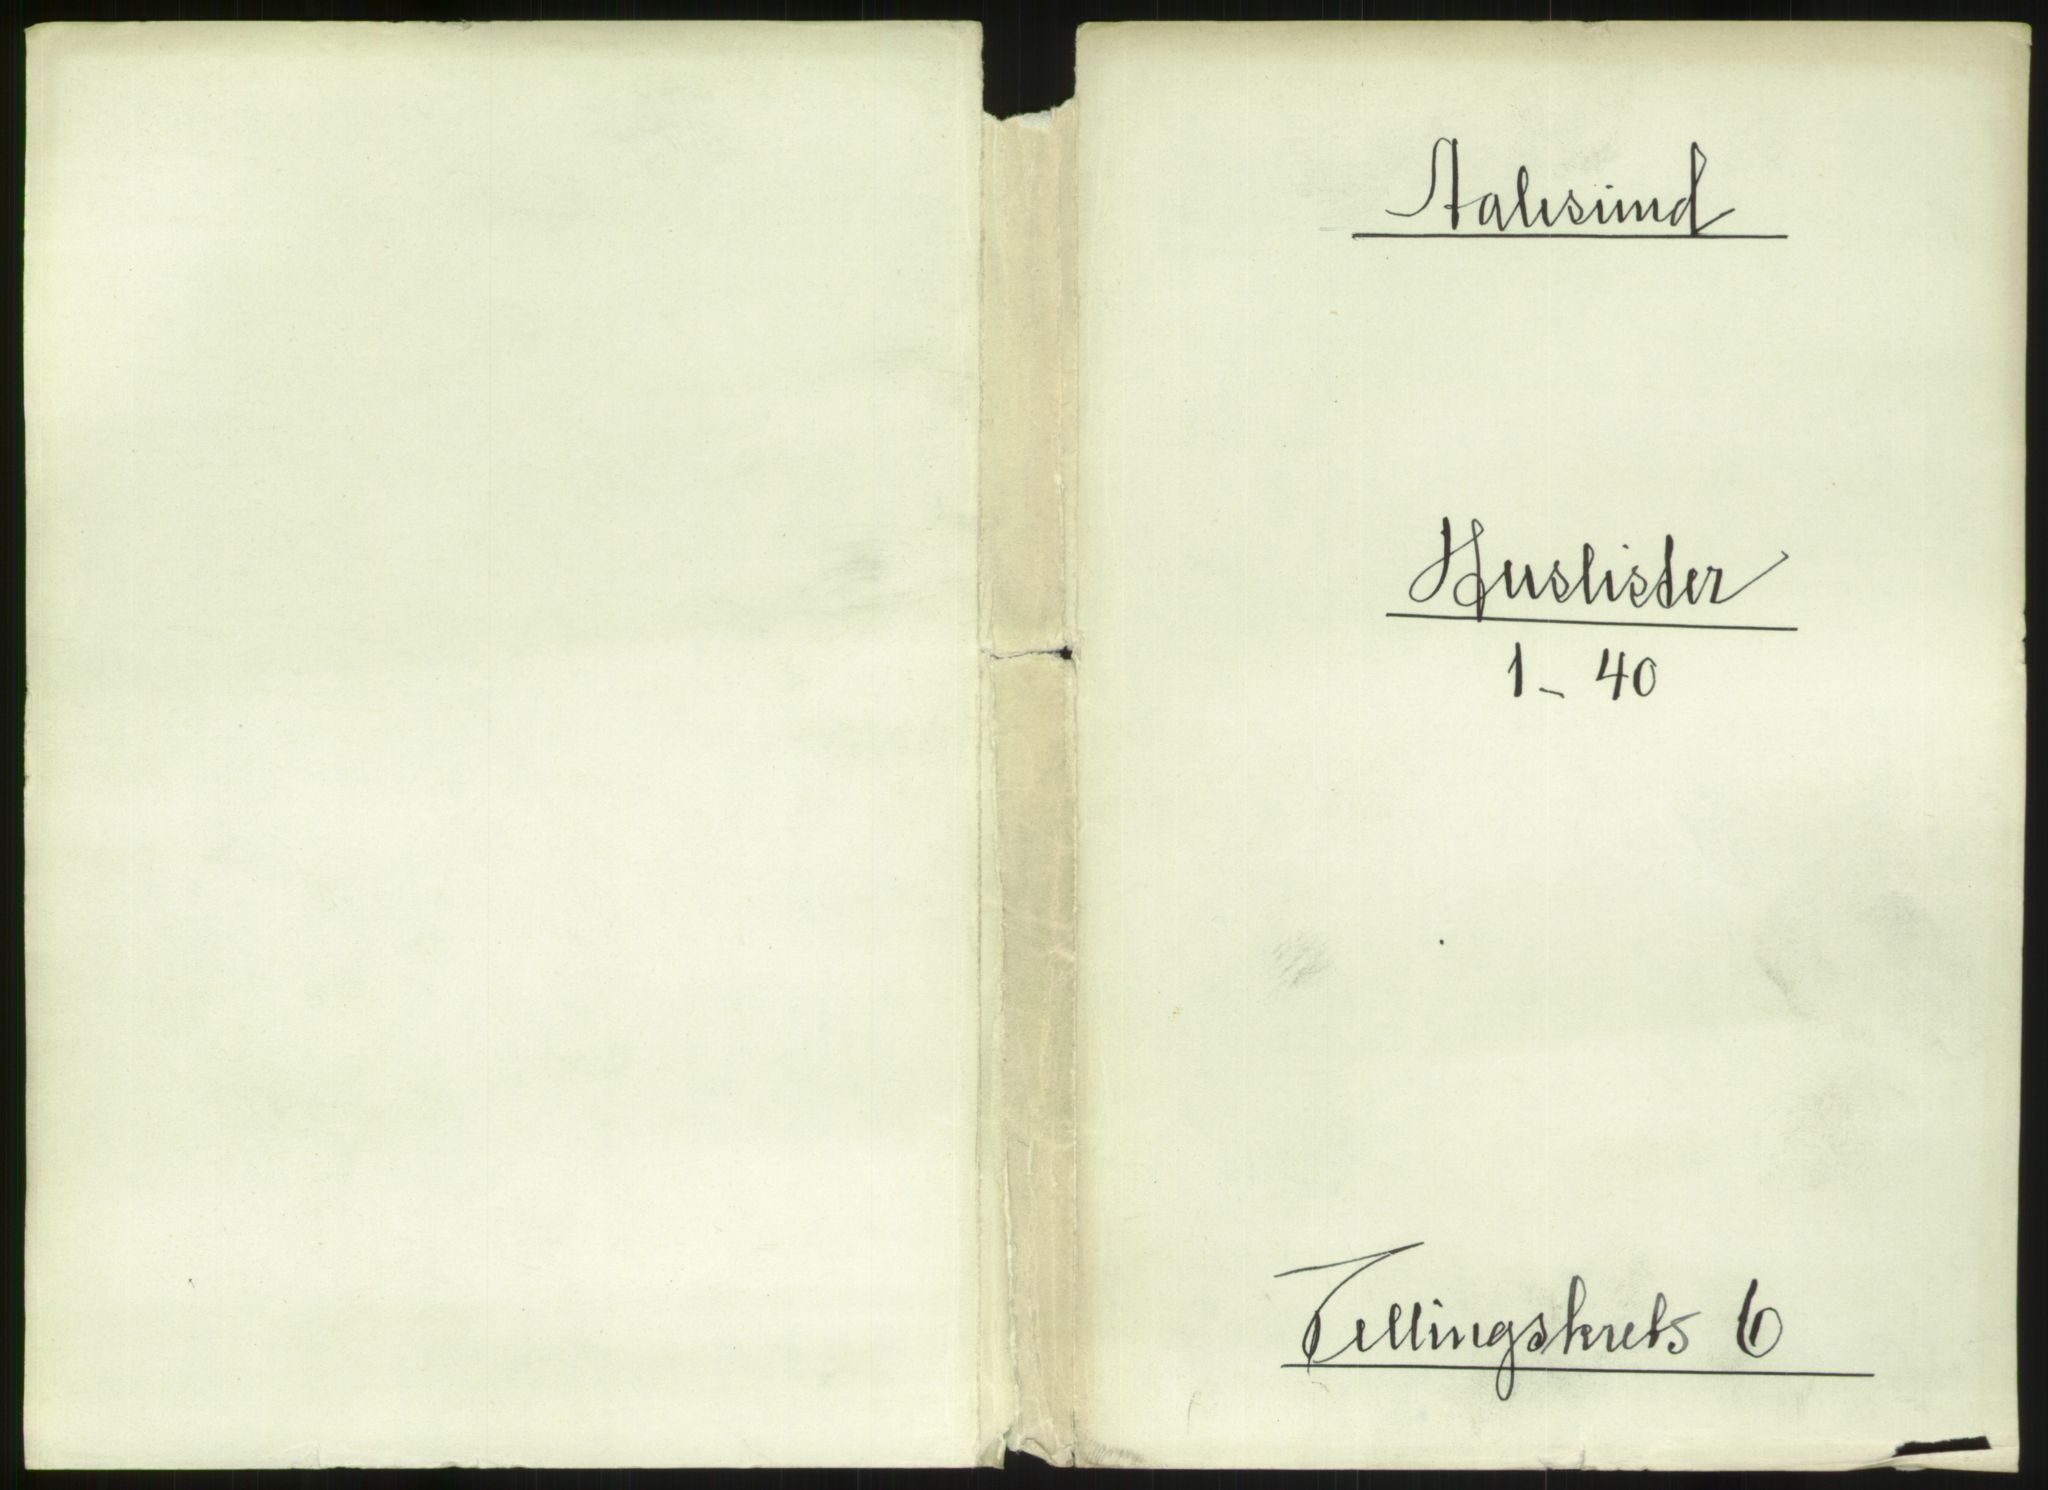 Aalesund
Huslister
1 - 40
Tellingskrets 6